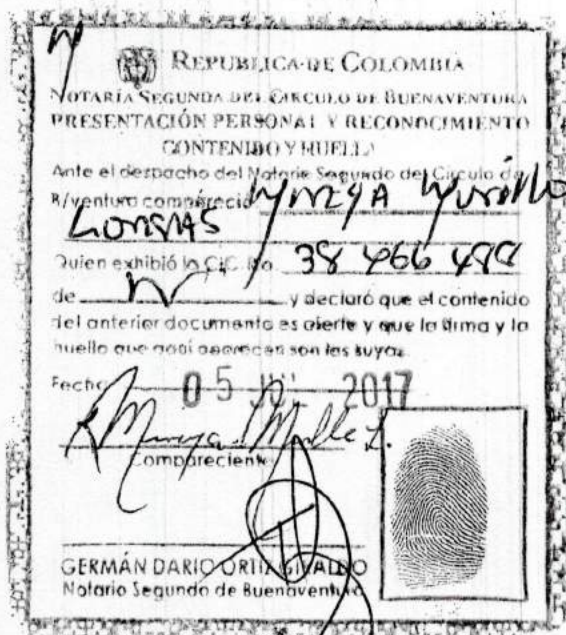 REPUBLICA DE COLOMBIA
NOTARÍA SEGUNDA DEL CIRCULO DE BUENAVENTURA
PRESENTACIÓN PERSONAL Y RECONOCIMIENTO
CONTENIDO Y HUELLA
Ante el despacho del Notario Segundo del Circulo de
B/ventura compareció Mireya Murillo
Quien exhibió la C.C. No. 38 466 488
de y declaró que el contenido
del anterior documento es cierto y que la firma y la
huella que aquí aparecen son las suyas.
Fecha 05 2017
Compareciente
GERMÁN DARIO ORTIZ GIRALDO
Notario Segundo de Buenaventura